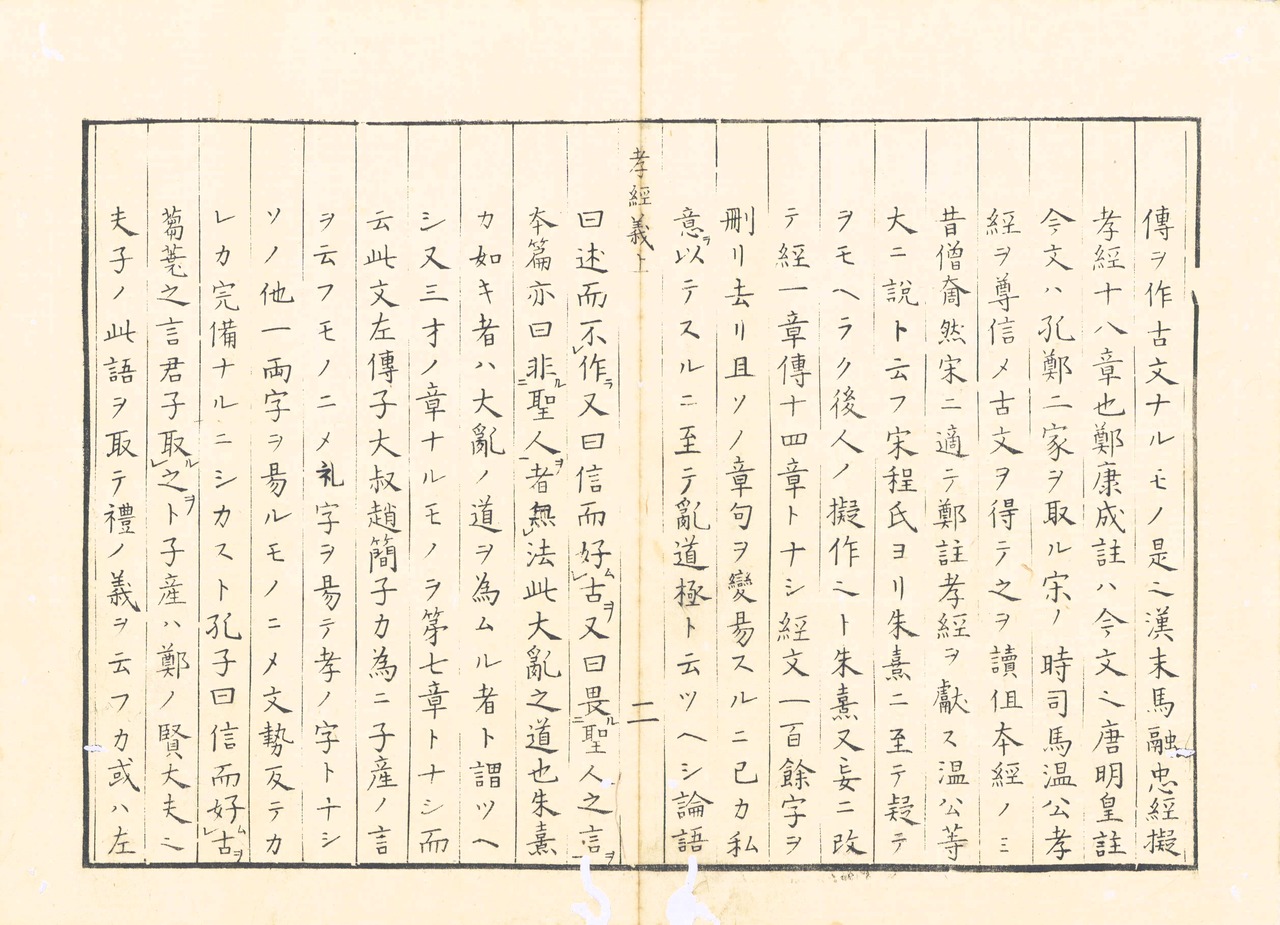 傳ヲ作古文ナルモノ是ニ漢末馬融忠經擬
孝經十八章也鄭康成註ハ今文ニ唐明皇註
今文ハ孔鄭二家ヲ取ル宋ノ時司馬温公孝
經ヲ尊信メ古文ヲ得テ之ヲ讀伹本經ノミ
昔僧奝然宋ニ適テ鄭註孝經ヲ獻ス温公等
大ニ説ト云フ宋程氏ヨリ朱熹ニ至テ疑テ
ヲモヘラク後人ノ擬作ニト朱熹又妄ニ改
テ經一章傳十四章トナシ經文一百餘字ヲ
刪リ去リ且ソノ章句ヲ變昜スルニ己カ私
意以ラテスルニ至テ亂道極ト云ツヘシ論語
孝經義上
二
曰述而不レ作ラ又曰信而好ムレ古ヲ又曰畏ル二聖人之言一ヲ
本篇亦曰非ル二聖人一ヲ者無レ法此大亂之道也朱熹
カ如キ者ハ大亂ノ道ヲ為ムル者ト謂ツヘ
シ又三才ノ章ナルモノヲ第七章トナシ而
云此文左傳子大叔趙簡子カ為ニ子産ノ言
ヲ云フモノニメ礼字ヲ昜テ孝ノ字トナシ
ソノ他一両字ヲ昜ルモノニメ文勢反テカ
レカ完備ナルニシカスト孔子曰信而好ムレ古ヲ
蒭蕘之言君子取ルレ之ヲト子産ハ鄭ノ賢大夫ニ
夫子ノ此語ヲ取テ禮ノ義ヲ云フカ或ハ左